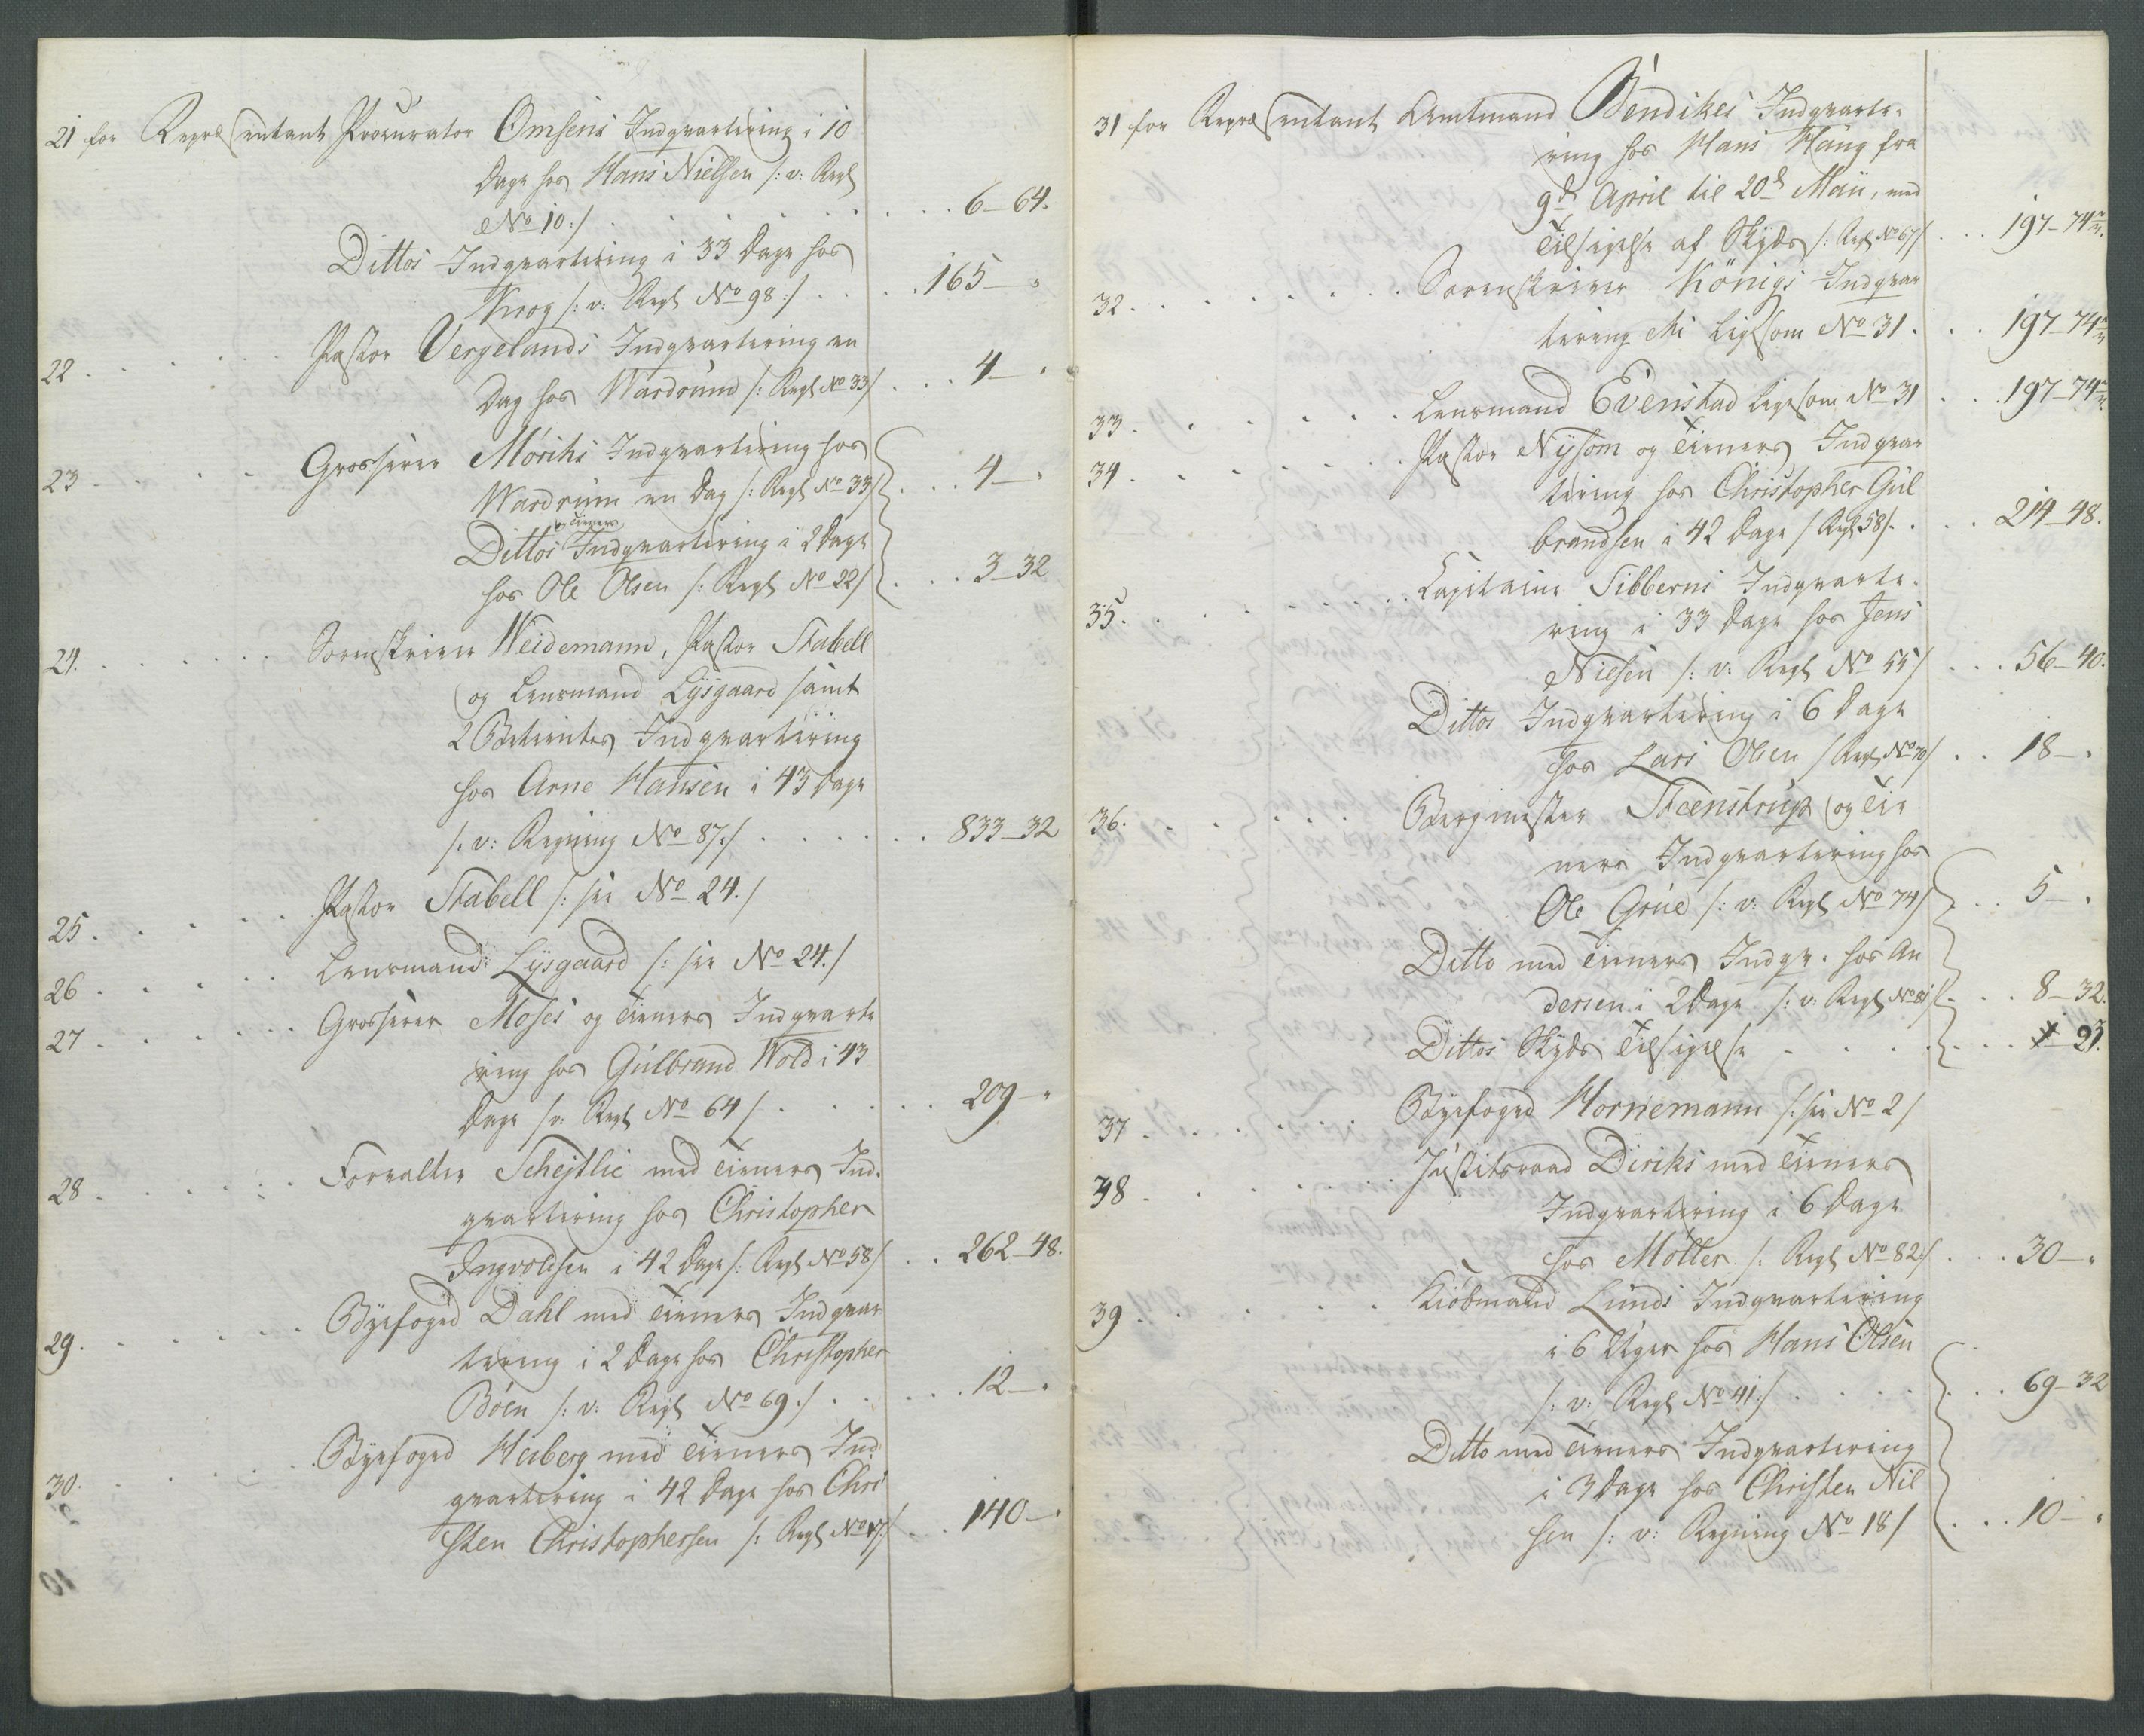 21 for Repræsentant Procurator Omsens Indqvartering i 10
Dage hos Hans Nielsen /: v: Regl
No 10 :/ . . . . . . . 6_64.
Dittos Indqvartering i 33 Dage hos
Knog /: v: Regl No 98 :/ . . . . 165_"
22 . . . . . Pastor Vergelands Indqvartering en
Dag hos Wardrum /: Regl No 33/ . . . 4_"
23 . . . . Grosserer Mórths Indqvartering hos
Wardrum en Dag /: Regl No 33/ . . . 4_"
og Tieners
Dittos Indqvartering i 2 Dage
hos Ole Olsen /: Regl No 22/ . . . 3_32
24. . . . . . . Sorenskriver Weidemann, Pastor Stabell
og Lensmand Lysgaard samt
2 Betientes Indqvartering
hos Arne Hansen i 43 Dage
/: v: Regning No 87:/ . . . . . . 833_32
25 . . . . . Pastor Stabell /: see No 24./
26 . . . . . Lensmand Lysgaard /: see No 24./
27 . . . . . . Grosserer Moses og Tieners Indqvarte
ring hos Gulbrand Wold i 43
Dage /v: Regl No 64/ . . . . . . 209_"
28 . . . . . . Forvalter Schejtlie med Tieners Ind-
qvartering hos Christopher
Ingvoldsen i 42 Dage /: Regl No 58/ . . 262_48.
29. . . . . . Byefoged Dahl med Tieners Indqvar
tering i 2 Dage hos Christopher
Böen /: v: Regl No 69./ . . . . . 12_"
30. . . . . . Byefoged Heiberg med Tieners Ind
qvartering i 42 Dage hos Chri
sten Christophersen /: Regl No 17:/ . . 140_"
31 for Repræsentant Amtmand Bendikes Indqvarte-
ring hos Hans Haug fra
9d April til 20d Maii, med
Tilsigelse af Skyds /: Regl No 67/ . . . 197_74
32 . . . . . . . . Sorenskriver Königs Indqvar
tering etc ligesom No 31 . . . 197_74
33 . . . . . . Lensmand Evenstad ligesom No 31 . . . 197_74
34 . . . . . . . Pastor Nysom og Tieners Indqvar
tering hos Christopher Gul
brandsen i 42 Dage / Regl 58/. . . . 214_48.
35. . . . . . . . Capitaine Sibberns Indqvarte-
ring i 33 Dage hos Jens
Nielsen /: v: Regl No 55/ . . . 56_40.
Dittos Indqvartering i 6 Dage
hos Lars Olsen / Regl No 70/ . . 18_"
36. . . . . . Bergmester Steenstrup og Tie
ners Indqvartering hos
Ole Grue /: v: Regl No 74/ . . 5_"
Ditto med Tieners Indqv. hos An
dersen i 2 Dage /: v: Regl No 81/ . . . 8_32.
Dittos Skyds Tilsigelse . . . . . . . 21.
37 . . . . . . Byefoged Hornemann /: see No 2/
38 . . . . . . . Justitsraad Diriks med Tieners
Indqvartering i 6 Dage
hos Moller /: Regl No 82:/ . . . 30_"
39 . . . . . . Kiöbmand Lunds Indqvartering
i 6 Uger hos Hans Olsen
/: v: Regl No 41:/ . . . . . . 69_32
Ditto med Tieners Indqvartering
i 3 Dage hos Christen Nil
sen /: v: Regning No 18/ . . . 10_"